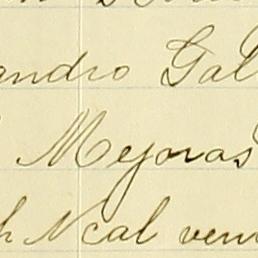 andro Gal
Mejoras
h Neal ven